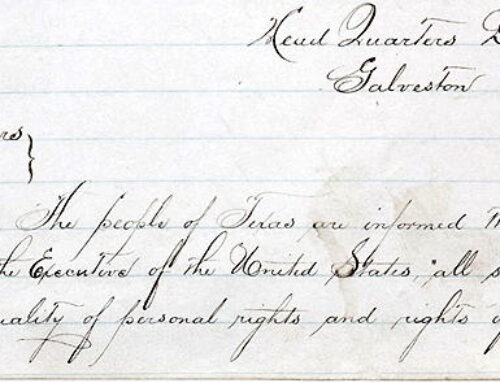 Head Quarters D
Galveston
rs}
The people of Texas are informed th
the Executive of the United States, "all s
uality of personal rights and rights of